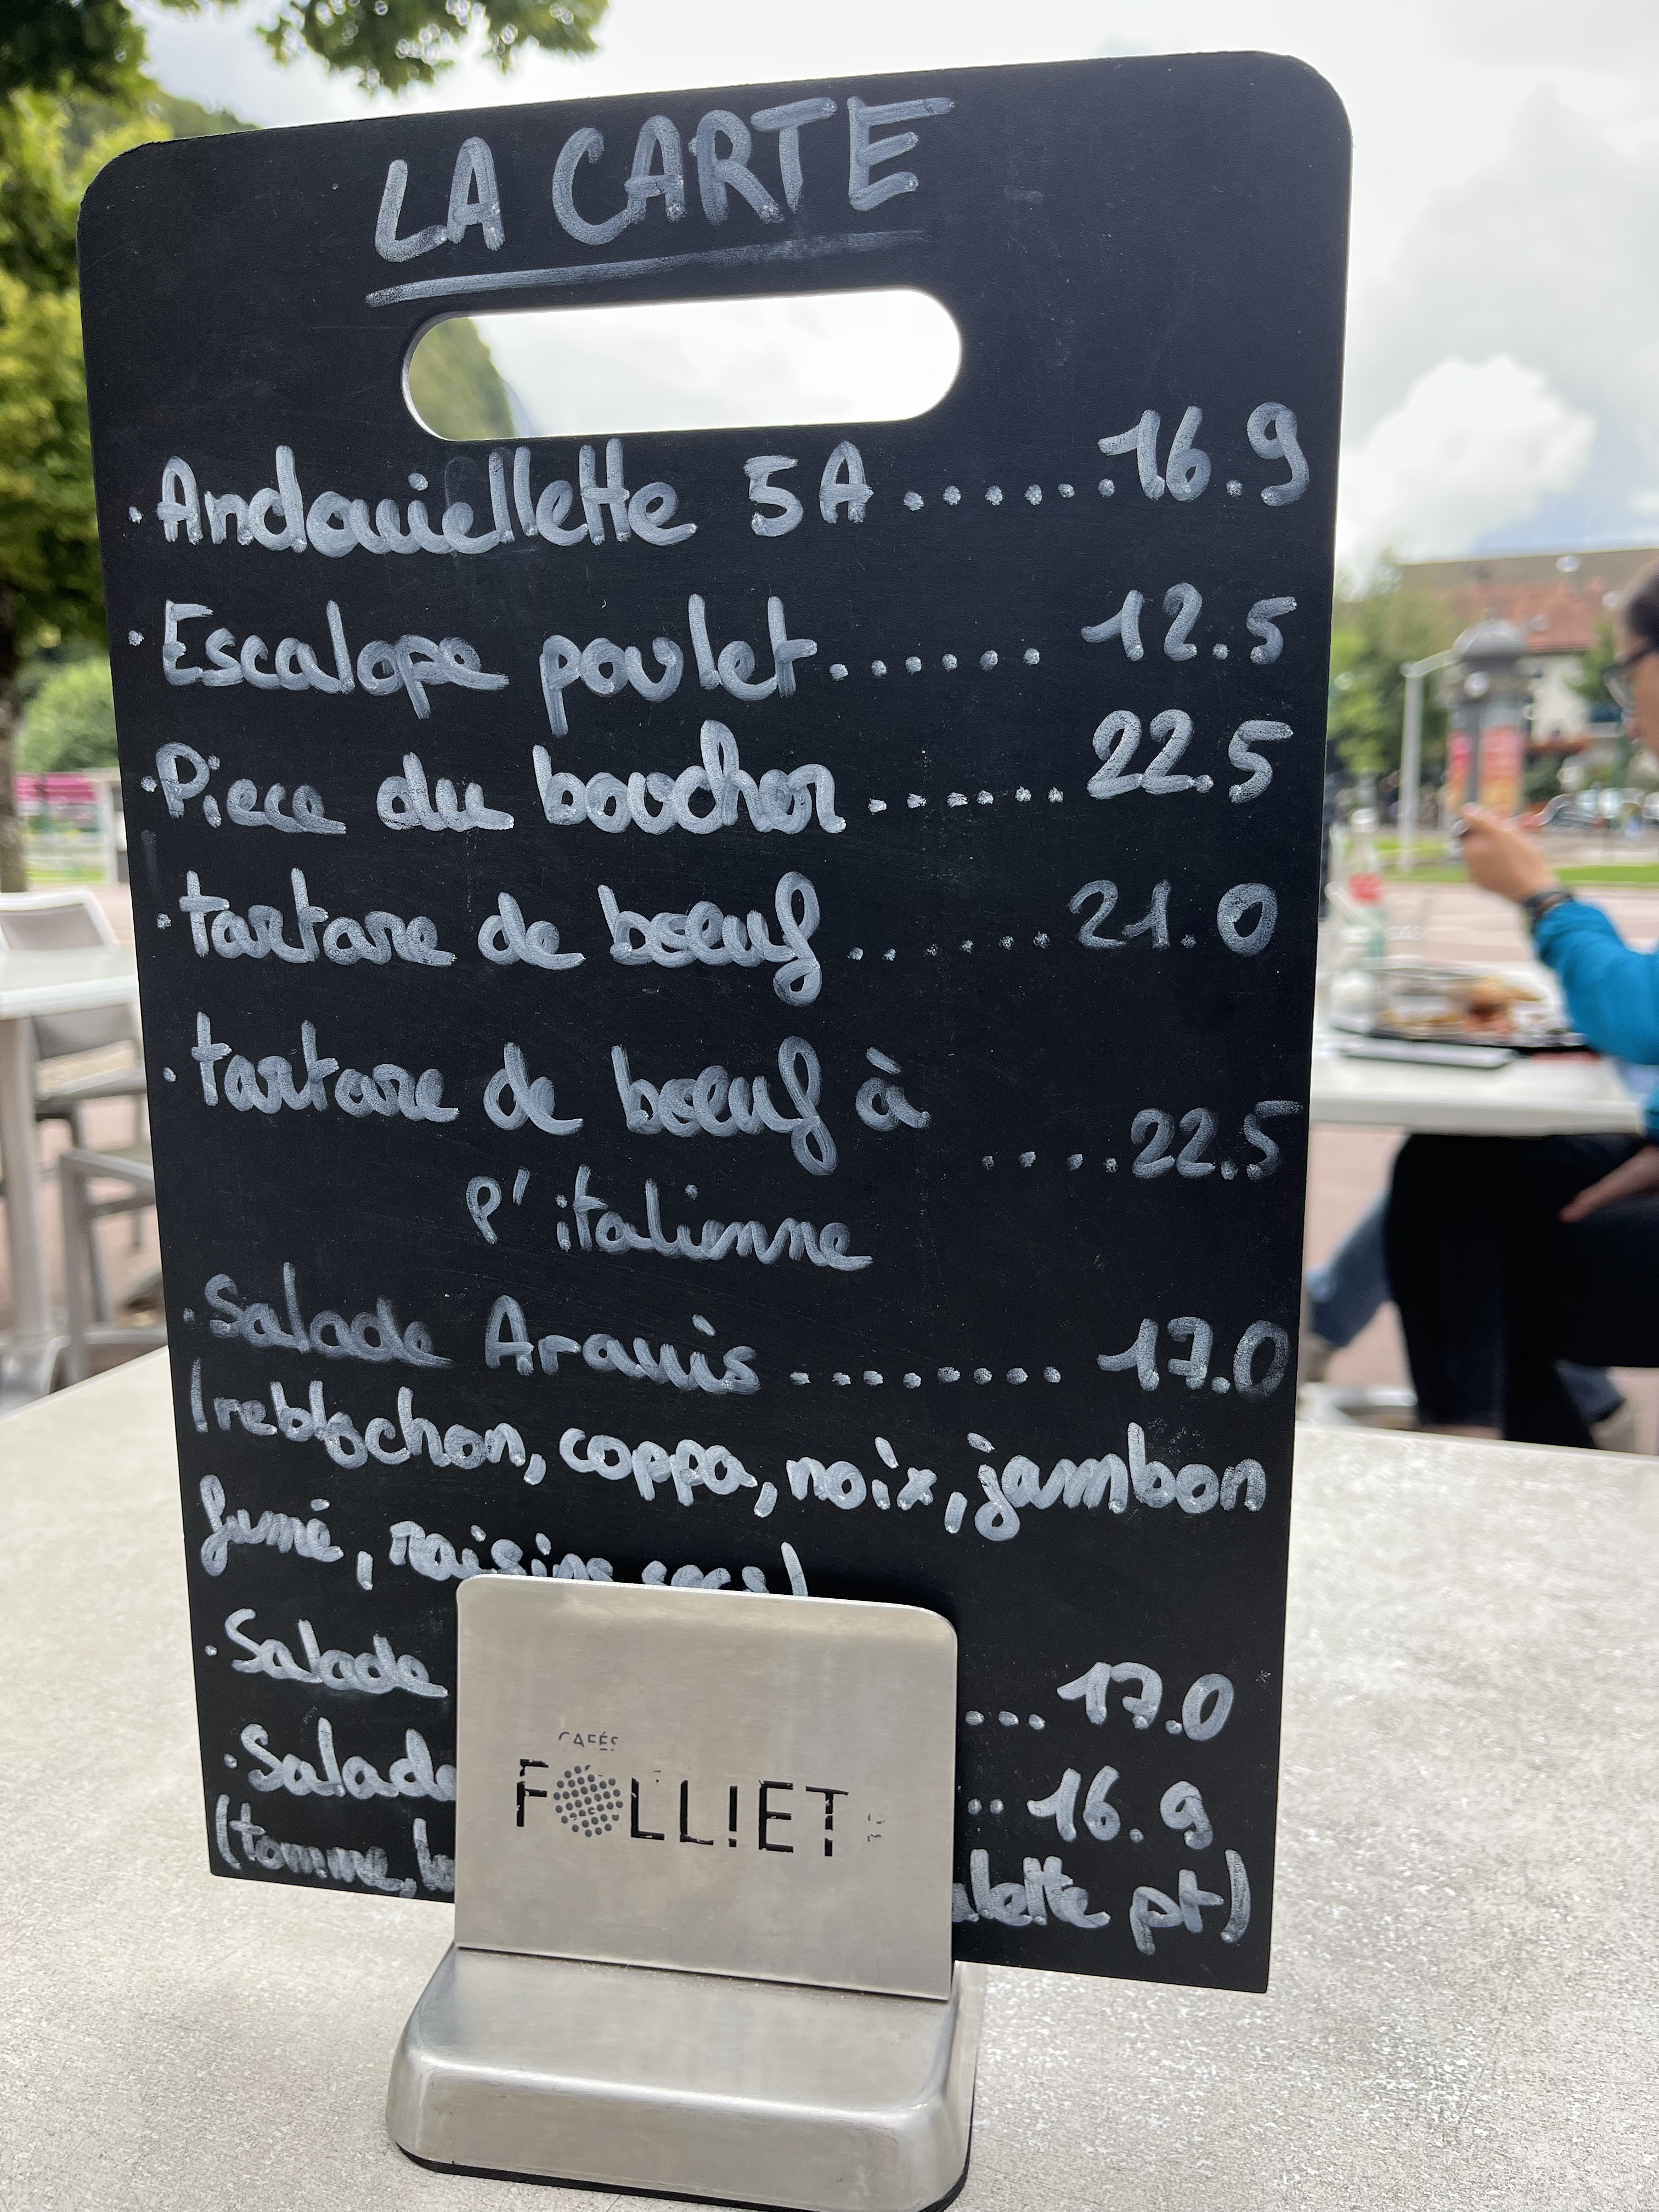 LA CARTE
· Andouiellette 5A ....... 16.9
· Escalope poulet ...... 12.5
· Piece du boucher ...... 22.5
· tartare de bœuf ...... 21.0
· tartare de bœuf à
.... 22.5
l'italienne
· Salade Aravis ........ 17.0
(reblochon, coppa, noix, jambon
fumé, raisins secs)
· Salade ... 17.0
· Salade .. 16.9
(tomme, pt)
CAFÉS
FOLLIET